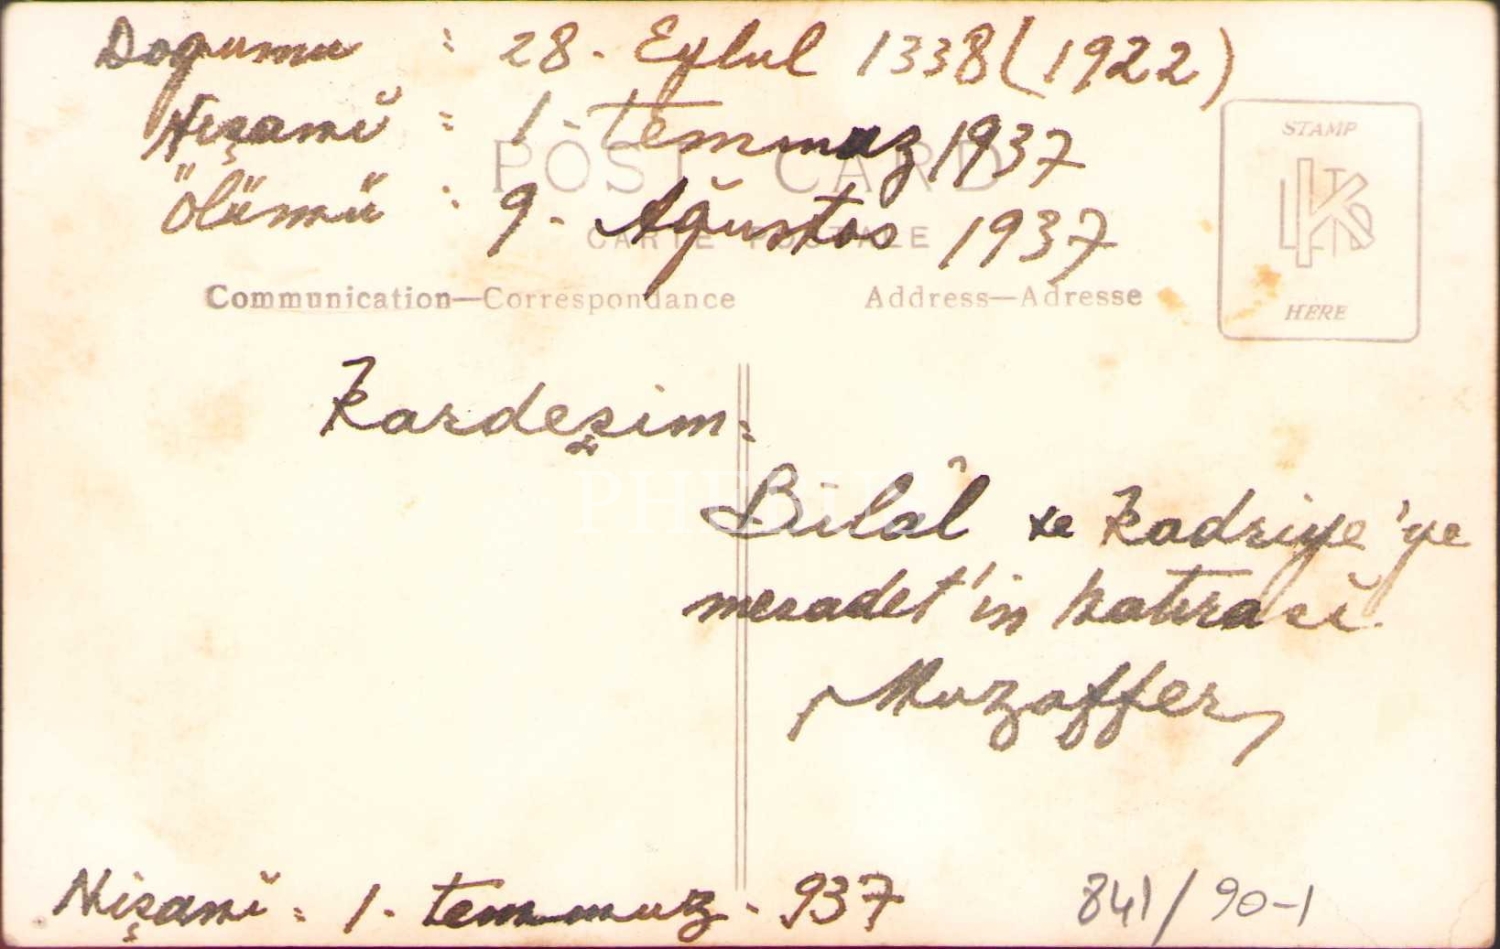 Doğumu : 28. Eylul 1338 (1922)
Nişanı : 1. temmuz 1937
Ölümü : 9. Ağustos 1937
POST CARD
CARTE POSTALE
Communication—Correspondance
Address—Adresse
STAMP
HERE
Kardeşim.
Bilâl ve Kadriye'ye
mesadet'in hatırası
Muzaffer
Nişanı : 1. temmuz . 937
841/90-1